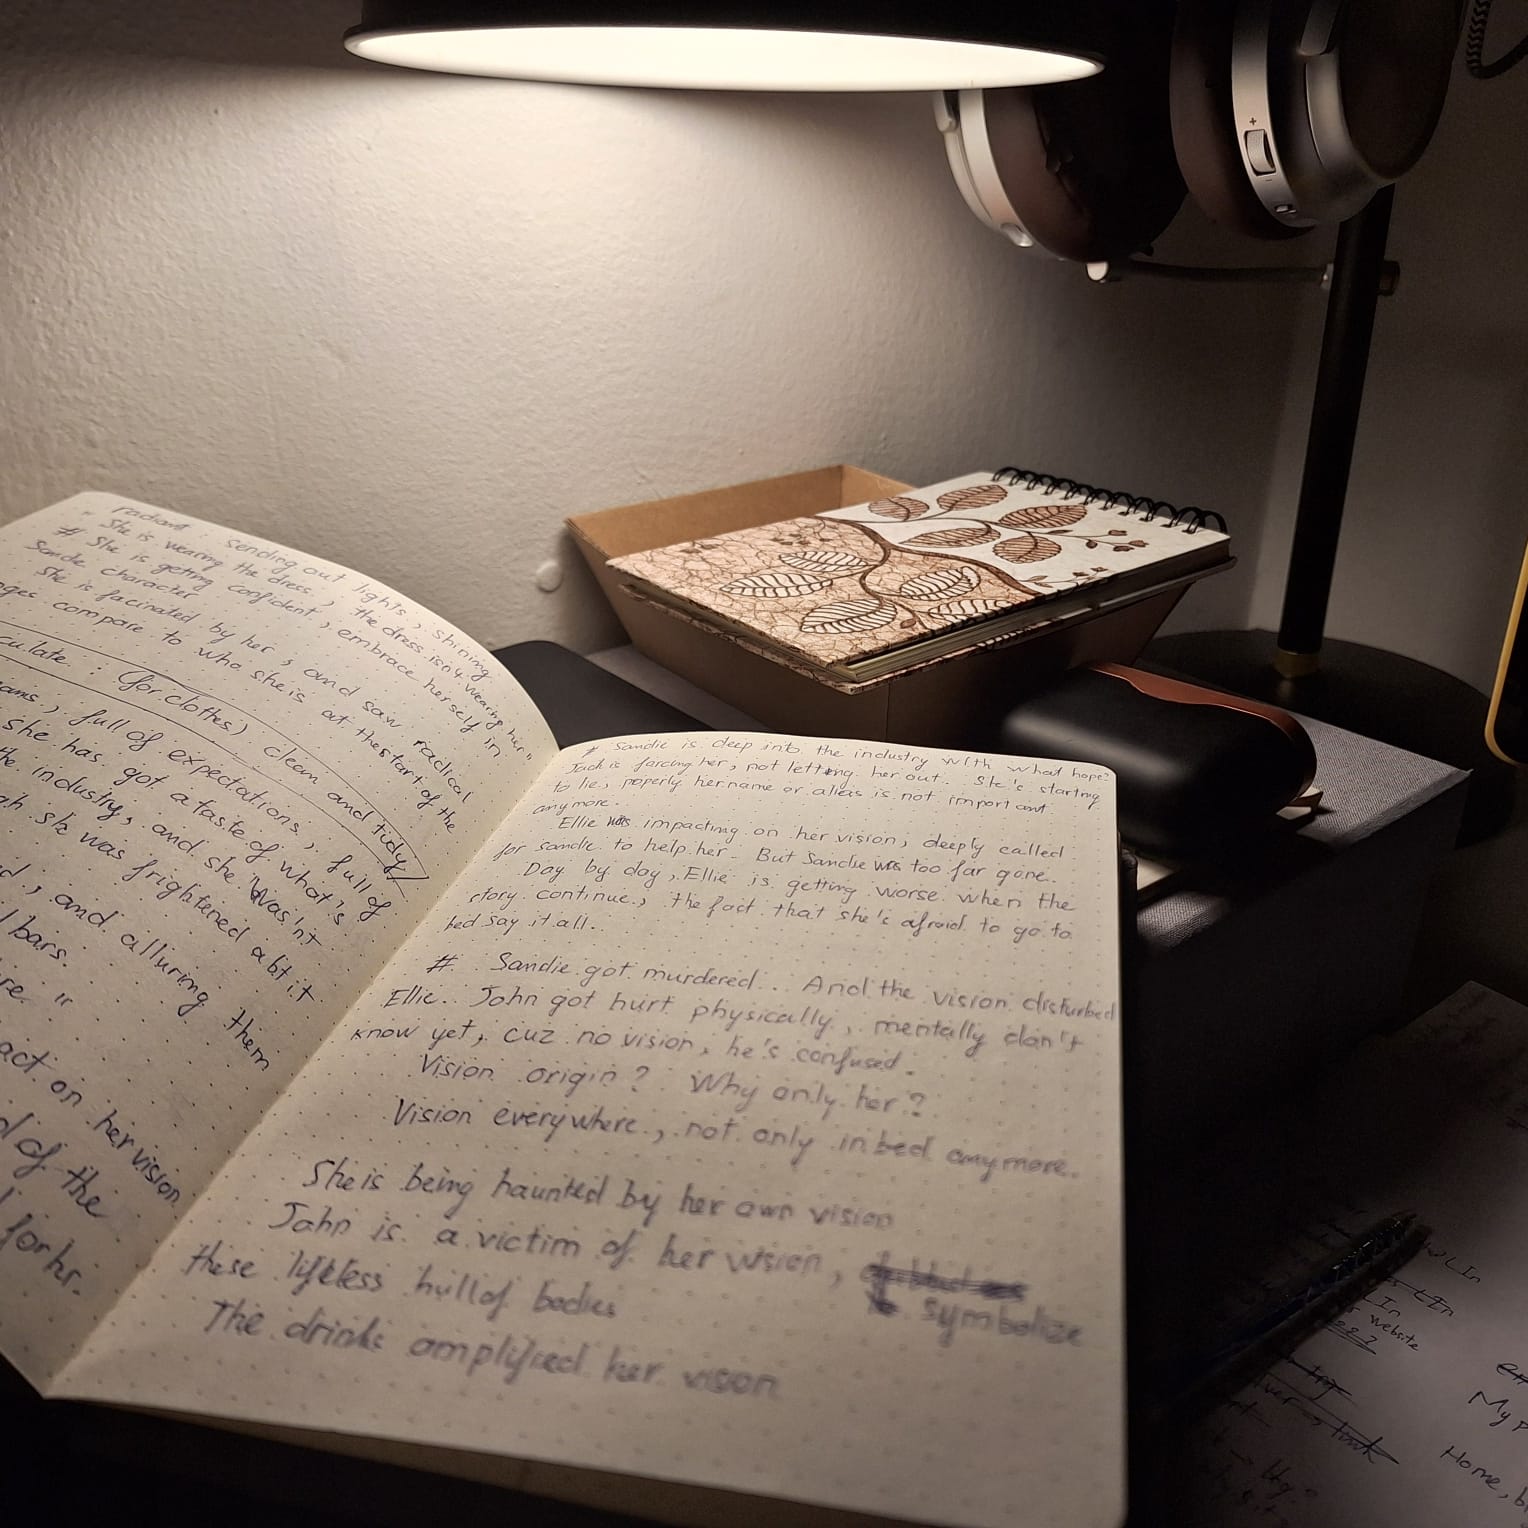 radiant : sending out lights, shining
" She is wearing the dress, the dress isn't wearing her "
# She is getting confident, embrace herself in
Sandie character
She is facinated by her, and saw radical
compare to who she is at the start of the
culate : (for clothes) clean and tidy
full of expectations, full of
she has got a taste of what's
industry, and she was'nt
she was frightened abt it
and alluring them
bars.
"
act on her vision
of the
for hr.
# Sandie is deep into the industry with what hope?
Jack is forcing her, not letting her out. She's starting
to lie, properly her name or alias is not important
anymore.
Ellie was impacting on her vision, deeply called
for sandie to help her. But Sandie was too far gone.
Day by day, Ellie is getting worse when the
story continue, the fact that she's afraid to go to
bed say it all.
# Sandie got murdered... And the vision disturbed
Ellie. John got hurt physically, mentally don't
know yet, cuz no vision, he's confused.
Vision origin? Why only her?
Vision everywhere, not only in bed anymore.
She is being haunted by her own vision
John is a victim of her vision,
these lifeless hull of bodies symbolize
The drinks amplified her vision
In
In
In
website
My
Home, b